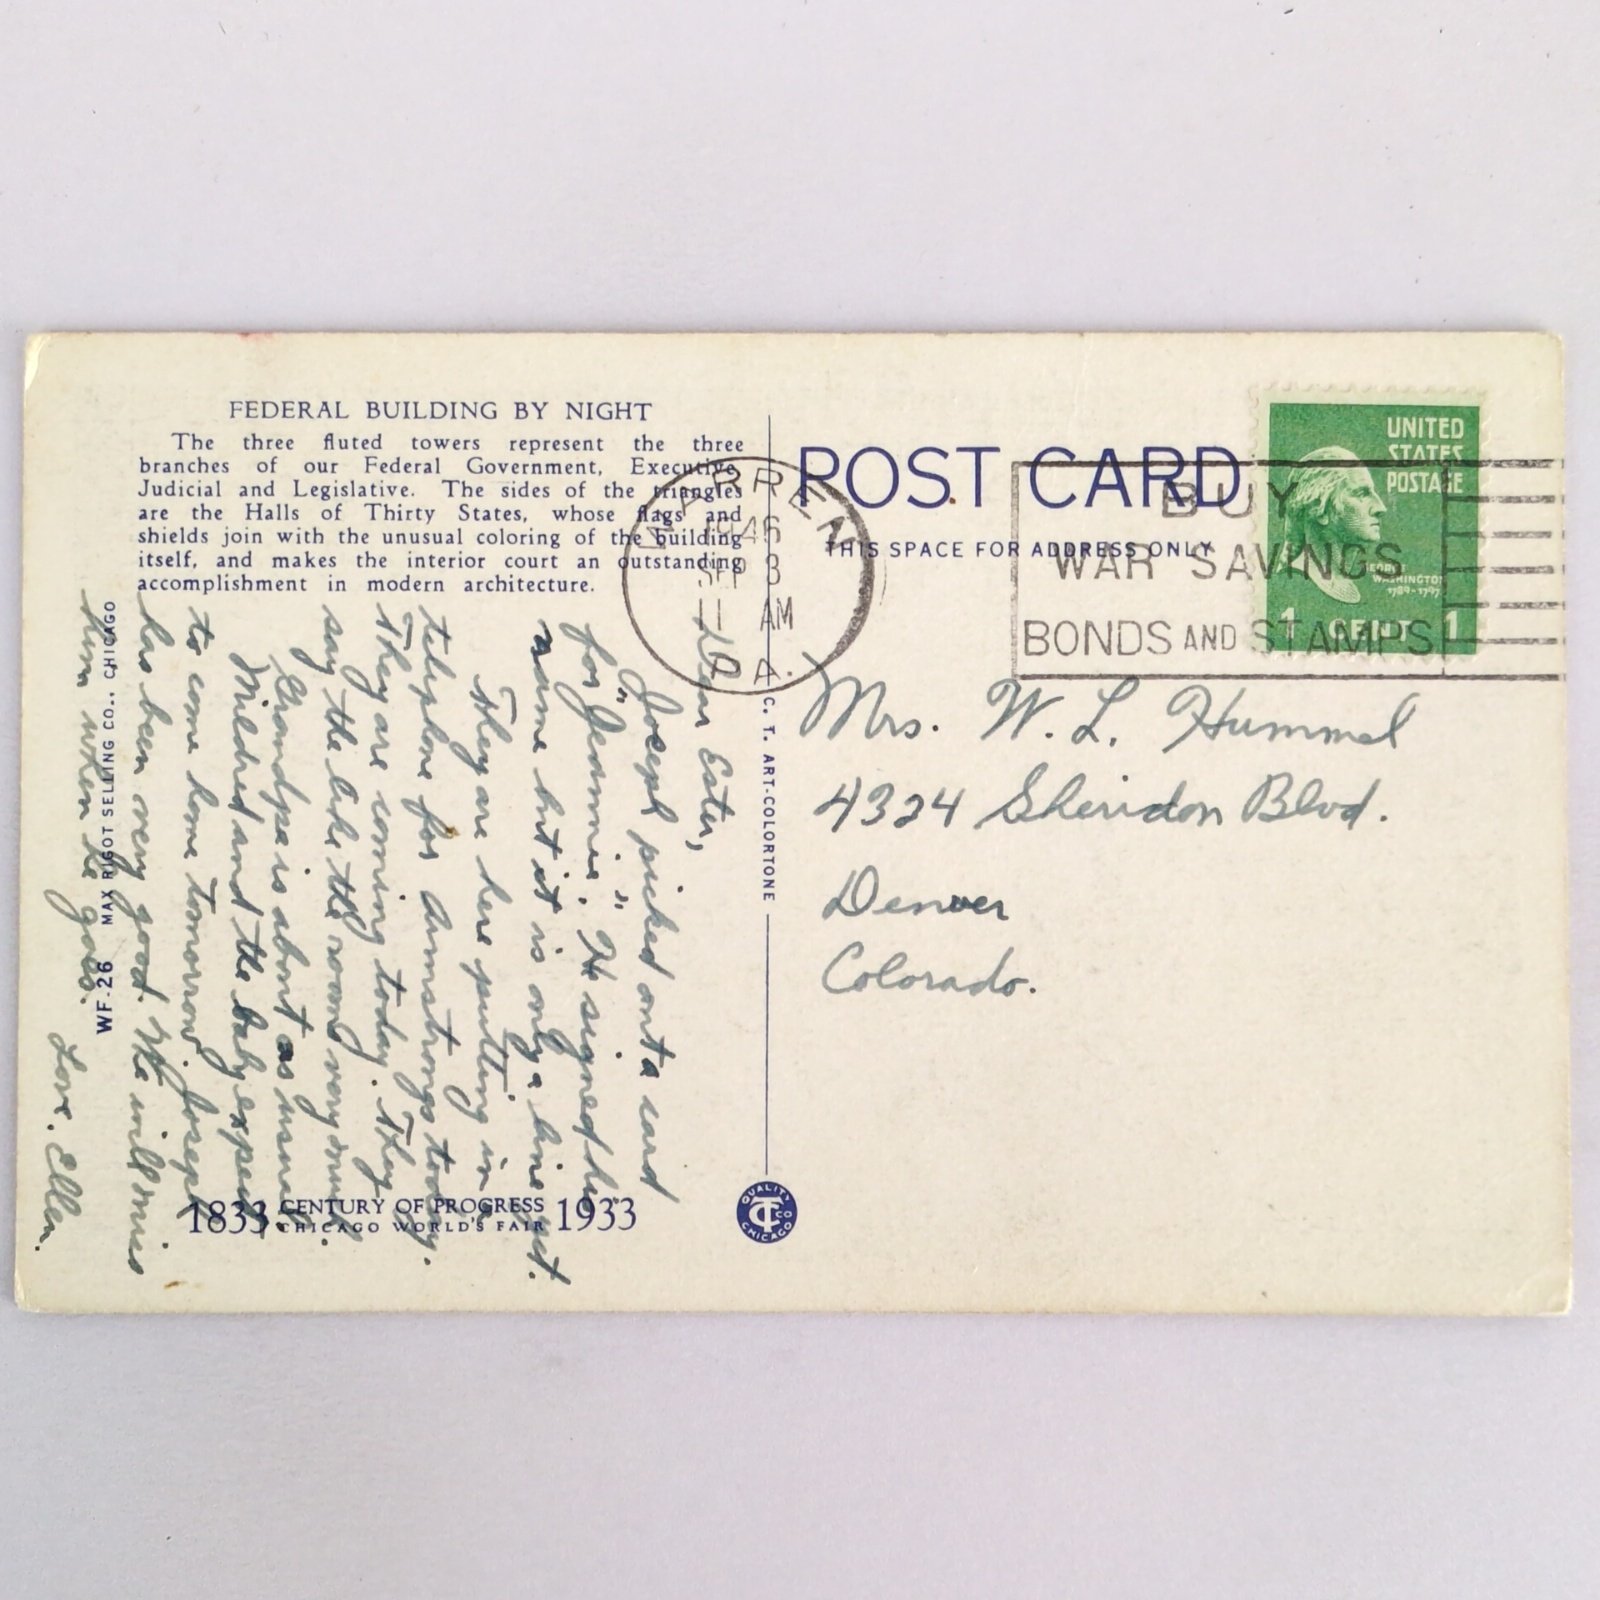 FEDERAL BUILDING BY NIGHT
The three fluted towers represent the three
branches of our Federal Government, Executive,
Judicial and Legislative. The sides of the triangles
are the Halls of Thirty States, whose flags and
shields join with the unusual coloring of the building
itself, and makes the interior court an outstanding
accomplishment in modern architecture.
Dear Ester,
Joseph picked out a card
for "Jeannie." He signed his
name but it is only a line yet.
They are here putting in a
telephone for Armstrongs today.
They are coming today. They
say the like the room very much.
Grandpa is about as usual.
Mildred and the baby expect
to come home tomorrow. Joseph
has been very good. We will miss
him when he goes.
Love. Ellen.
WF-26 MAX RIGOT SELLING CO., CHICAGO
1833 CENTURY OF PROGRESS 1933
CHICAGO WORLD'S FAIR
C. T. ART-COLORTONE
QUALITY
CT CO
CHICAGO
POST CARD
THIS SPACE FOR ADDRESS ONLY
WARREN
1946
SEP 3
11 AM
PA.
BUY
WAR SAVINGS
BONDS AND STAMPS
UNITED
STATES
POSTAGE
GEORGE
WASHINGTON
1789-1797
1 CENT 1
Mrs. W. L. Hummel
4324 Sheridon Blvd.
Denver
Colorado.